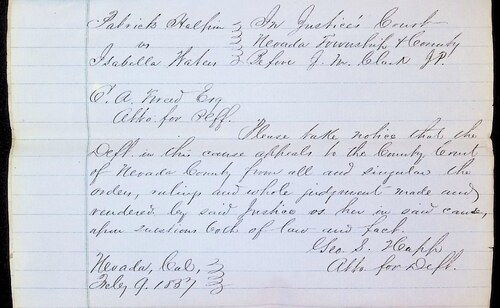 Patrick Halpin In Justice's Court
vs Nevada Township & County
Isabella Before J. M. Clark J.P.
C. A. Esq
Atto. for Plff.
Please take notice that the
Deft. in this cause appeals to the County Court
of Nevada County from all and singular the
orders, rulings and whole judgment made and
rendered by said Justice as her in said cause,
upon questions both of law and fact.
Geo. S. Hupp
Nevada, Cal, Atto for Deft.
July 9, 1867